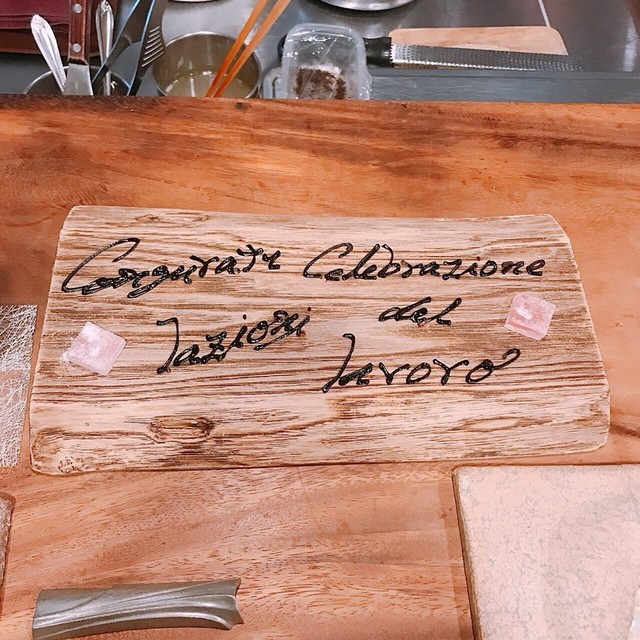 Conguratu Celebrazione
lazioni del
lavoro